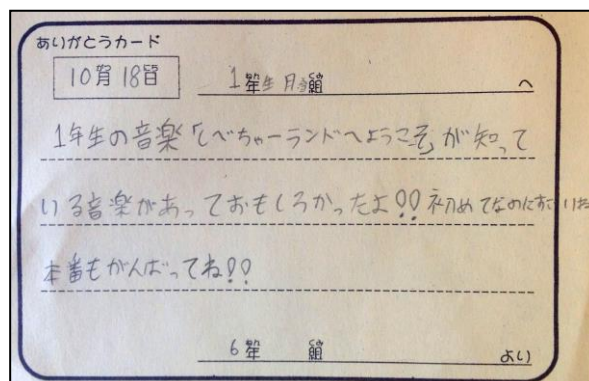 ありがとうカード
10月18日
1年生月組 へ
1年生の音楽「しべちゃーランドへようこそ」が知って
いる音楽があっておもしろかったよ!!初めてなのにすごいね
本番もがんばってね!!
6年 組 より